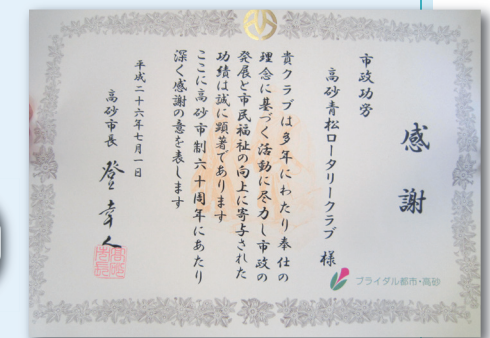 感謝
市政功労
高砂青松ロータリークラブ 様
貴クラブは多年にわたり奉仕の
理念に基づく活動に尽力し市政の
発展と市民福祉の向上に寄与された
功績は誠に顕著であります
ここに高砂市制六十周年にあたり
深く感謝の意を表します
平成二十六年七月一日
高砂市長 登幸人
ブライダル都市・高砂